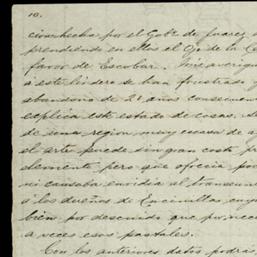 10.
cion hecha por el Gobº de Juarez
prendiendo en ellos el Ojo de la
favor de Escobar. Mis averigu
á este lindero se han frustrado
abandono de 20 años consecu
explica este estado de cosas.
de una region, muy escasa de
el arte puede sin gran costo pr
ni causaba envidia al transeun
a los dueños de Encinillas, cuy
bien por descuido que por nece
a veces esos pastales.
Con los anteriores datos podrá